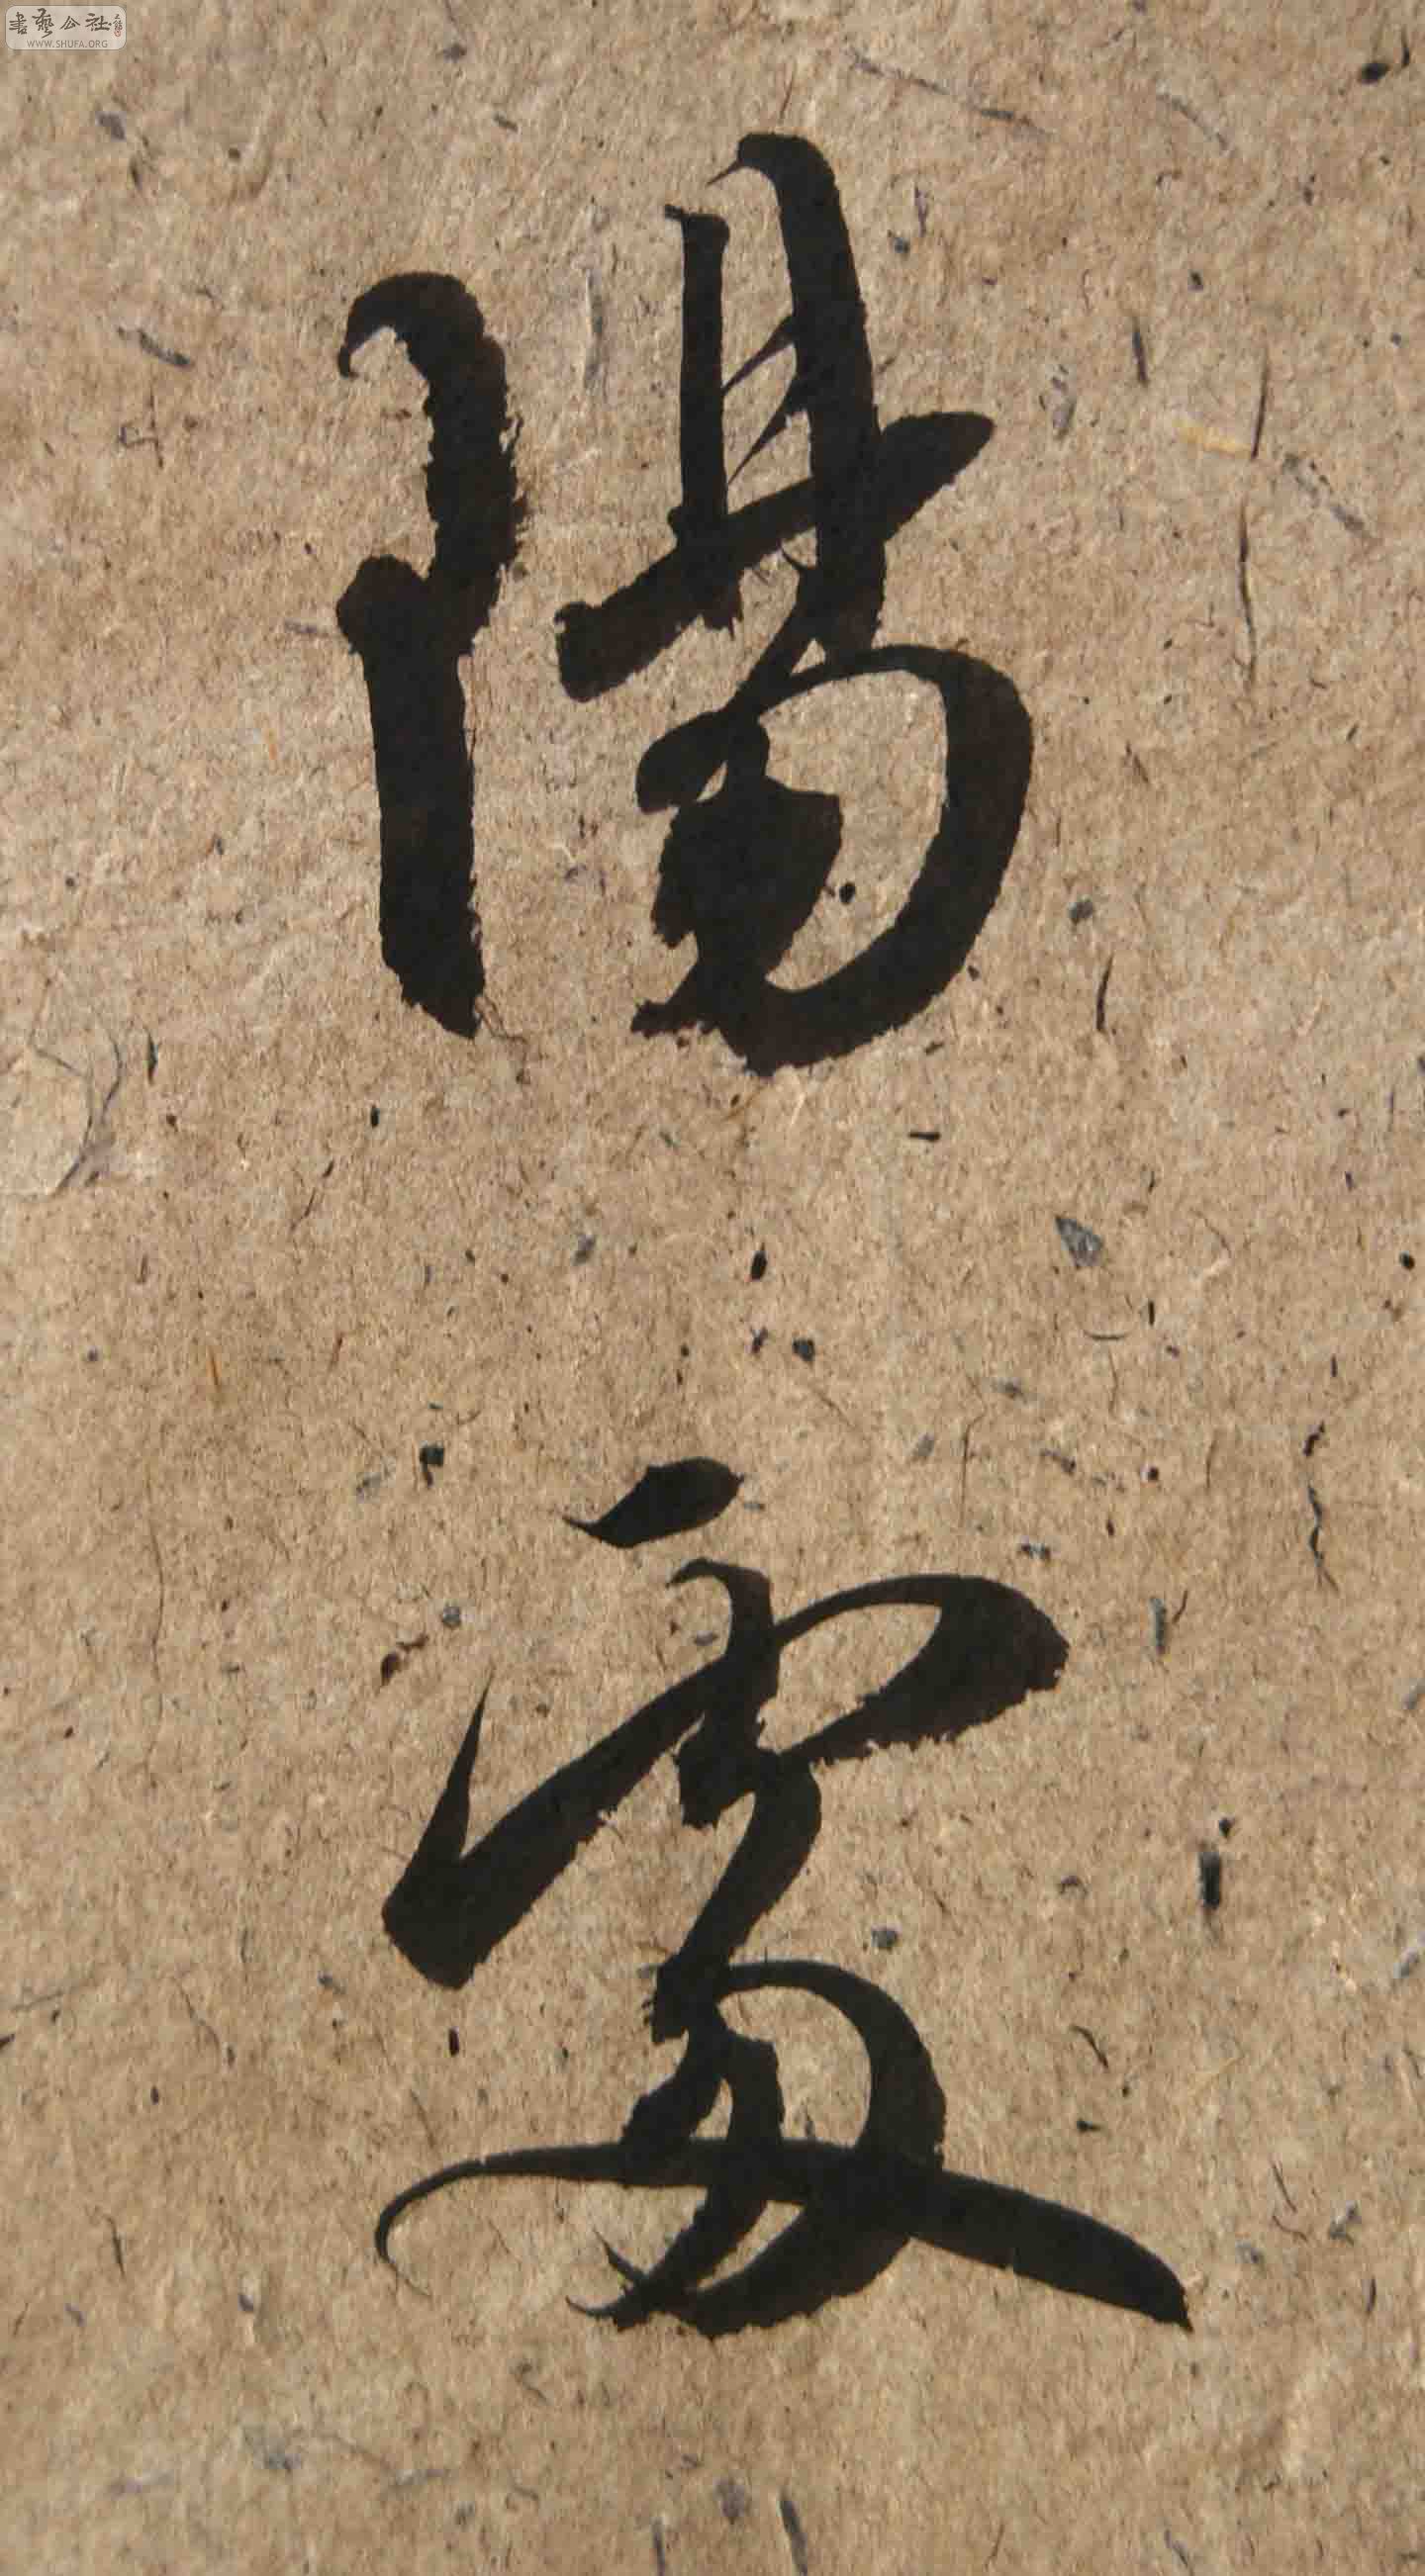 書藝公社
WWW.SHUFA.ORG
陽
霞